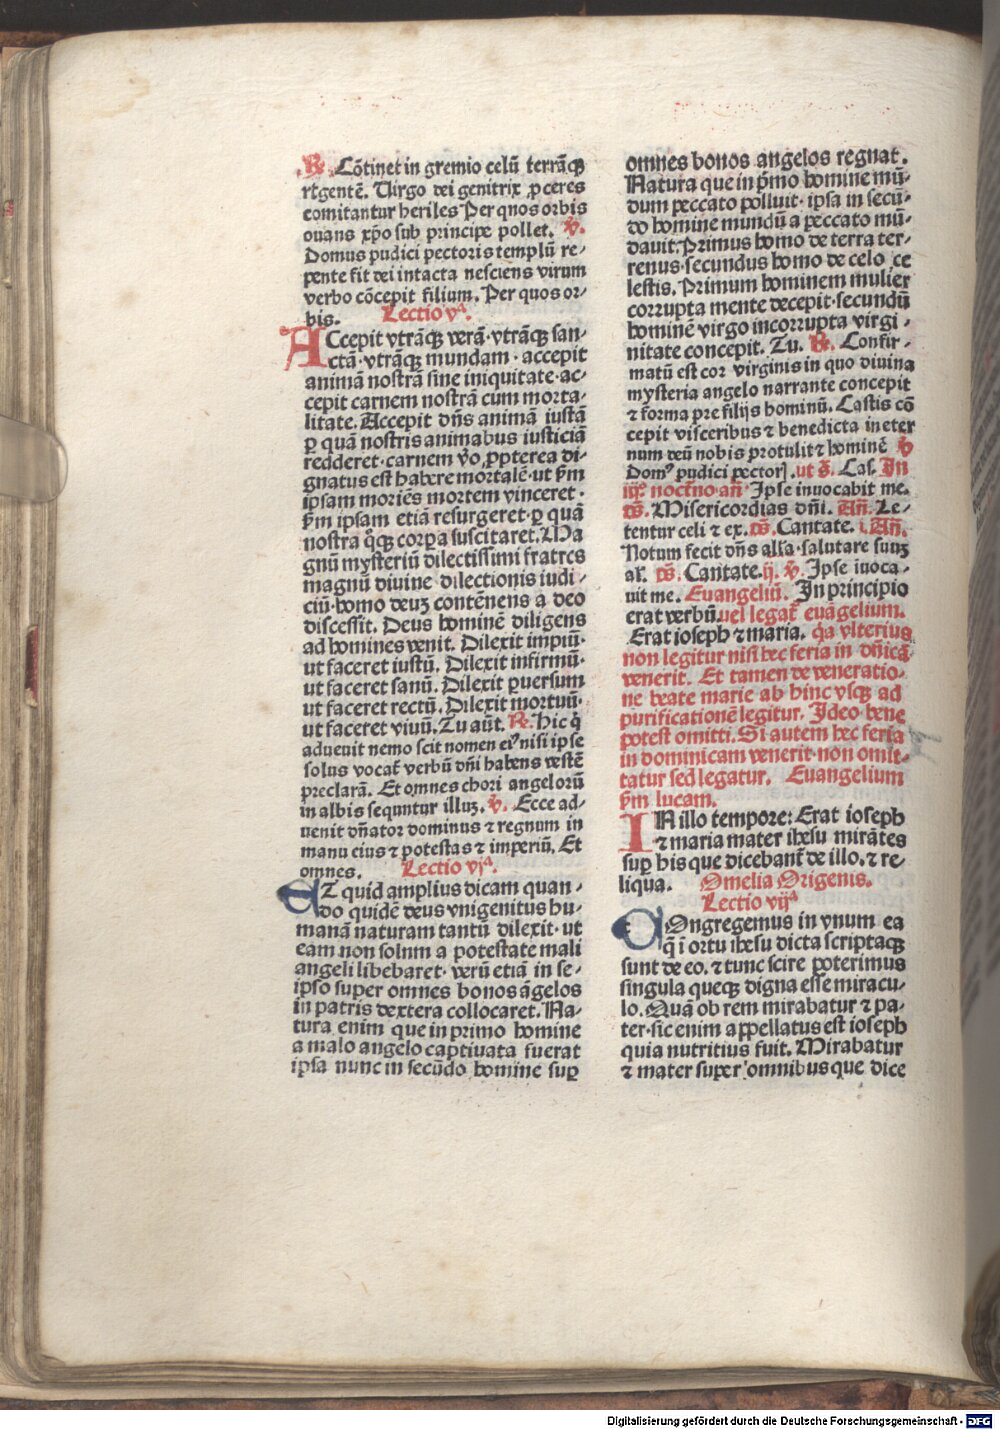 ℟. Cõtinet in gremio celũ terrãqꝫ
rẽgentẽ. Virgo dei genitrix ꝓceres
comitantur heriles Per quos orbis
ouans xp̃o sub principe pollet. ℣.
Domus pudici pectoris templũ re⸗
pente fit dei intacta nesciens virum
verbo cõcepit filium. Per quos or⸗
bis. Lectio vᵃ.
ACcepit vtrãqꝫ verã·vtrãqꝫ san⸗
ctã·vtrãqꝫ mundam·accepit
animã nostrã sine iniquitate·ac⸗
cepit carnem nostrã cum morta⸗
litate. Accepit dñs animã iustã
ꝑ quã nostris animabus iusticiã
redderet·carnem ỽo ꝓpterea di⸗
gnatus est habere mortalẽ·ut ꝑm
ipsam moriẽs mortem vinceret·
ꝑm ipsam etiã resurgeret·ꝑ quã
nostra q̊qꝫ corpora suscitaret. Ma
gnũ mysteriũ dilectissimi fratres
magnũ diuine dilectionis iudi⸗
ciũ·homo deuꝫ contẽnens a deo
discessit. Deus hominẽ diligens
ad homines venit. Dilexit impiũ·
ut faceret iustũ. Dilexit infirmũ·
ut faceret sanũ. Dilexit ꝑuersum
ut faceret rectũ. Dilexit mortuũ·
ut faceret viuũ. Tu aũt. ℟. Hic q̇
aduenit nemo scit nomen eiꝰ nisi ipse
solus vocat̃ verbũ dñi habens vestẽ
preclarã. Et omnes chori angelorũ
in albis sequntur illuꝫ. ℣. Ecce ad⸗
uenit dñator dominus ⁊ regnum in
manu eius ⁊ potestas ⁊ imperiũ. Et
omnes. Lectio vjᵃ.
ET quid amplius dicam quan⸗
do quidẽ deus vnigenitus hu⸗
manã naturam tantũ dilexit·ut
eam non solnm a potestate mali
angeli libebaret·verũ etiã in se⸗
ipso super omnes bonos ãgelos
in patris dextera collocaret. Na⸗
tura enim que in primo homine
a malo angelo captiuata fuerat
ipsa nunc in secũdo homine suꝑ
omnes bonos angelos regnat.
Natura que in p̃mo homine mũ⸗
dum peccato polluit·ipsa in secũ⸗
do homine mundũ a peccato mũ⸗
dauit. Primus homo de terra ter⸗
renus·secundus homo de celo ce
lestis. Primum hominem mulier
corrupta mente decepit·secundũ
hominẽ virgo incorrupta virgi⸗
nitate concepit. Tu. ℟. Confir⸗
matũ est cor virginis in quo diuina
mysteria angelo narrante concepit
⁊ forma pre filijs hominũ. Castis cõ
cepit visceribus ⁊ benedicta in eter
num deũ nobis protulit ⁊ hominẽ ℣
Domꝰ pudici pectorꝭ. ut s̃. Cas. In
iijᵒ noct̃no añ Ipse inuocabit me.
p̃s. Misericordias dñi. Añ. Le⸗
tentur celi ⁊ ex. p̃s. Cantate. Añ.
Notum fecit dñs alľa·salutare suuꝫ
aľ. p̃s. Cantate. ij. ℣. Ipse ĩuoca⸗
uit me. Euangeliũ. In principio
erat verbũ. uel legat̃ euãgelium.
Erat ioseph ⁊ maria. q̃a vlterius
non legitur nisi hec feria in dñicã
venerit. Et tamen de veneratio⸗
ne beate marie ab hinc vsqꝫ ad
purificationẽ legitur. Ideo bene
potest omitti. Si autem hec feria
in dominicam venerit·non omit⸗
tatur sed legatur. Euangelium
ꝑm lucam.
IN illo tempore: Erat ioseph
⁊ maria mater ihesu mirãtes
suꝑ his que dicebant̃ de illo. ⁊ re⸗
liqua. Omelia Origenis.
Lectio vijᵃ
COngregemus in vnum ea
q̃ ĩ ortu ihesu dicta scriptaqꝫ
sunt de eo. ⁊ tunc scire poterimus
singula queqꝫ digna esse miracu⸗
lo. Quã ob rem mirabatur ⁊ pa⸗
ter·sic enim appellatus est ioseph
quia nutritius fuit. Mirabatur
⁊ mater super omnibus que dice
Digitalisierung gefördert durch die Deutsche Forschungsgemeinschaft - DFG